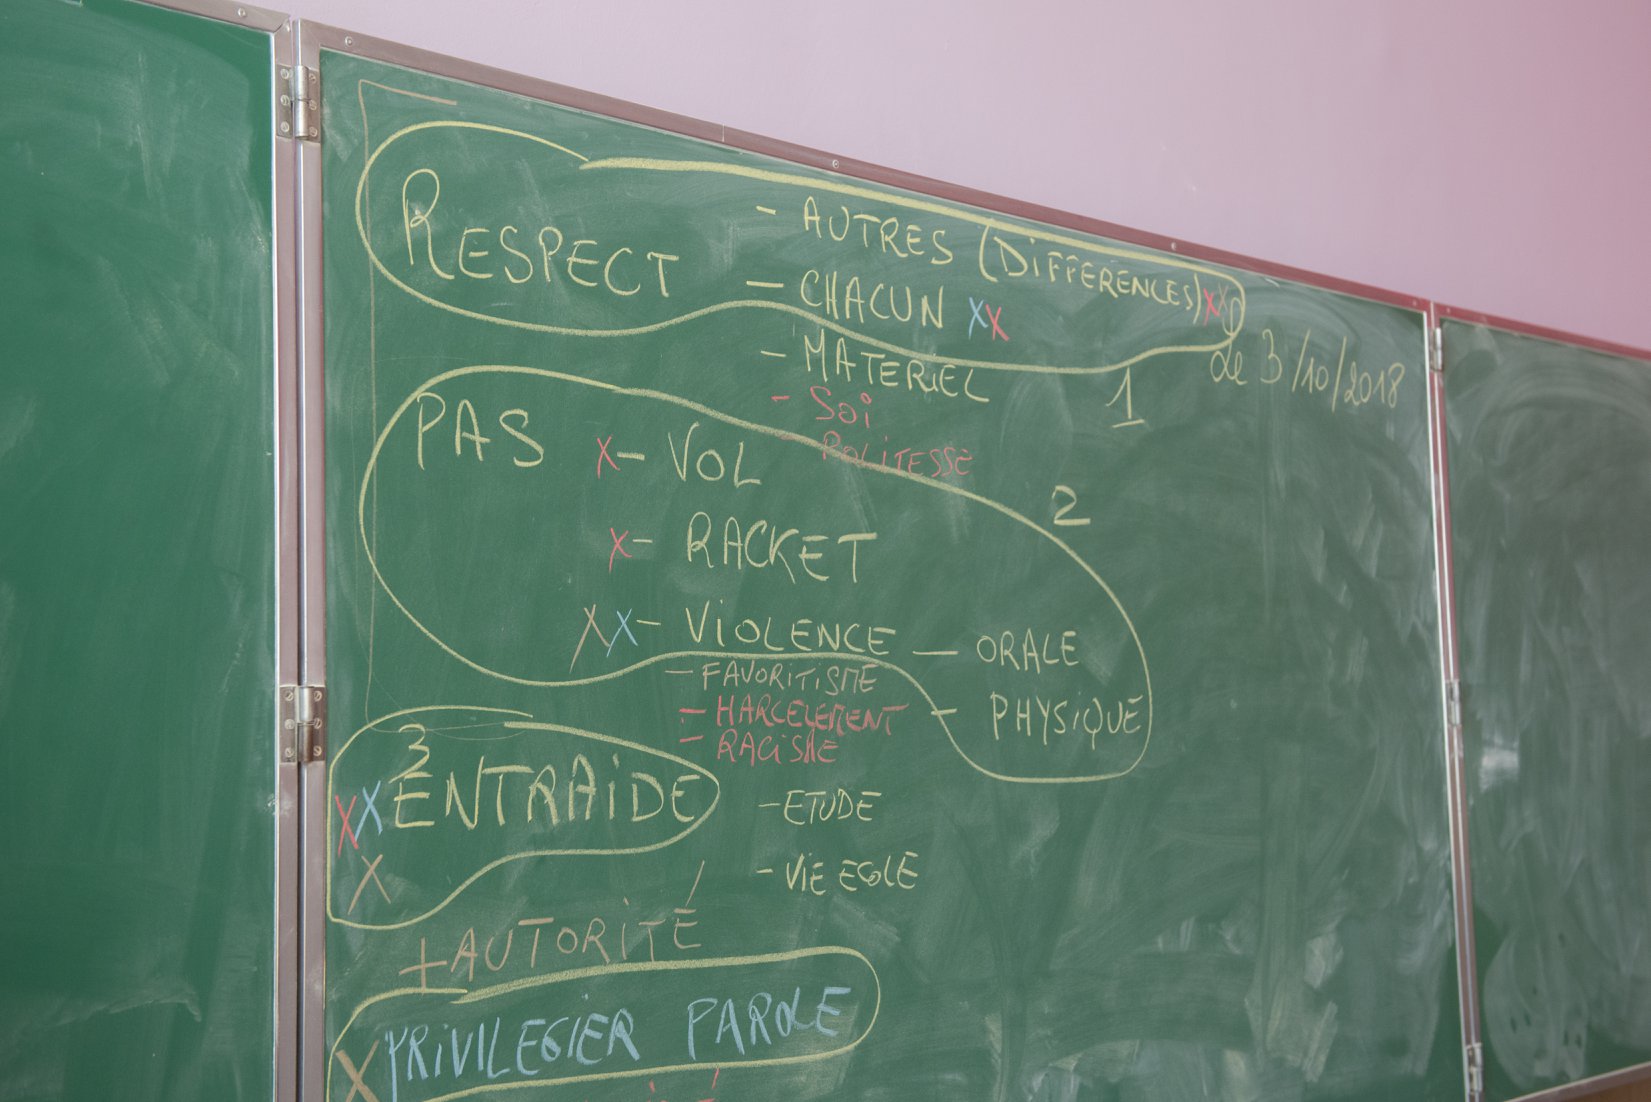 RESPECT - AUTRES (DiFFERENCES) XX
- CHACUN XX
- MATERiEL
1
de 3/10/2018
- Soi
- POLiTESSE
PAS X- VOL
2
X- RACKET
XX- ViOLENCE - ORALE
- FAVORiTiSME
- HARCELEMENT - PHYSiQUE
- RACiSME
3
XX ENTRAiDE - ETUDE
X - ViE ECOLE
+ AUTORiTÉ
X PRiViLEGiER PAROLE